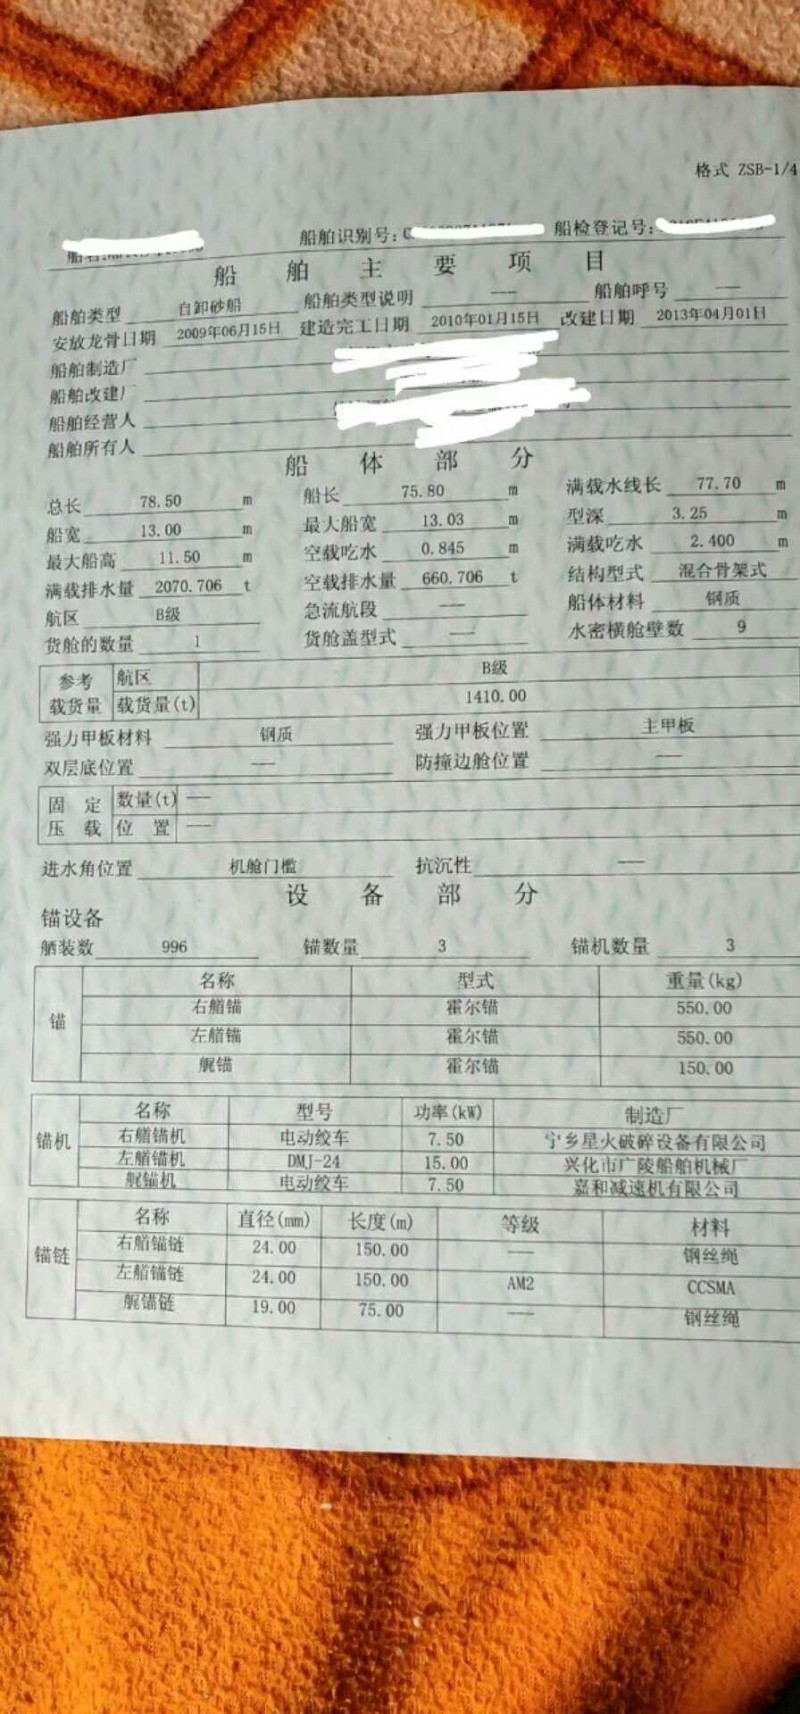 格式 ZSB-1/4
船舶识别号: 船检登记号:
船舶主要项目
船舶类型 自卸砂船 船舶类型说明 —— 船舶呼号 ——
安放龙骨日期 2009年06月15日 建造完工日期 2010年01月15日 改建日期 2013年04月01日
船舶制造厂
船舶改建厂
船舶经营人
船舶所有人
船体部分
总长 78.50 m 船长 75.80 m 满载水线长 77.70 m
船宽 13.00 m 最大船宽 13.03 m 型深 3.25 m
最大船高 11.50 m 空载吃水 0.845 m 满载吃水 2.400 m
满载排水量 2070.706 t 空载排水量 660.706 t 结构型式 混合骨架式
航区 B级 急流航段 —— 船体材料 钢质
货舱的数量 1 货舱盖型式 —— 水密横舱壁数 9
参考载货量 航区 B级
载货量(t) 1410.00
强力甲板材料 钢质 强力甲板位置 主甲板
双层底位置 —— 防撞边舱位置 ——
固定压载 数量(t) ——
位置 ——
进水角位置 机舱门槛 抗沉性 ——
设备部分
锚设备
舾装数 996 锚数量 3 锚机数量 3
锚 名称 型式 重量(kg)
右艏锚 霍尔锚 550.00
左艏锚 霍尔锚 550.00
艉锚 霍尔锚 150.00
锚机 名称 型号 功率(kW) 制造厂
右艏锚机 电动绞车 7.50 宁乡星火破碎设备有限公司
左艏锚机 DMJ-24 15.00 兴化市广陵船舶机械厂
艉锚机 电动绞车 7.50 嘉和减速机有限公司
锚链 名称 直径(mm) 长度(m) 等级 材料
右艏锚链 24.00 150.00 —— 钢丝绳
左艏锚链 24.00 150.00 AM2 CCSMA
艉锚链 19.00 75.00 —— 钢丝绳